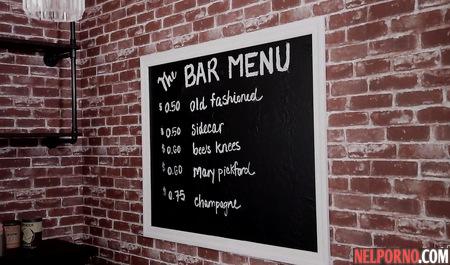 The BAR MENU
$0.50 Old fashioned
$0.50 Sidecar
$0.60 bee's knees
$0.60 Mary pickford
$0.75 champagne
NELPORNO.COM